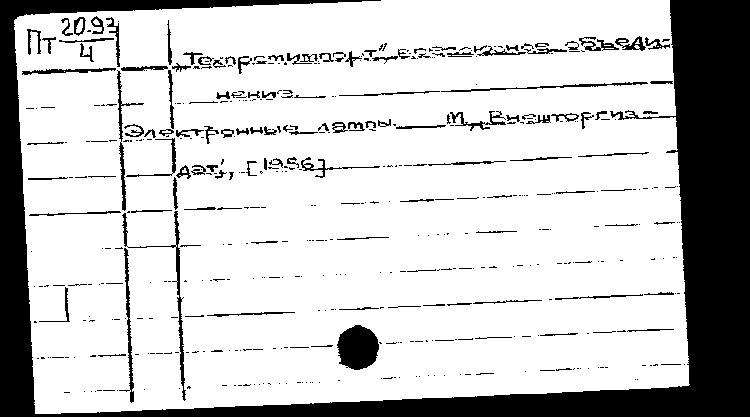 Пт 20.93
4
„Техпромимпорт", всесоюзное объеди-
нение.
Электронные лампы. М., „Внешторгиз-
дат", [1956]